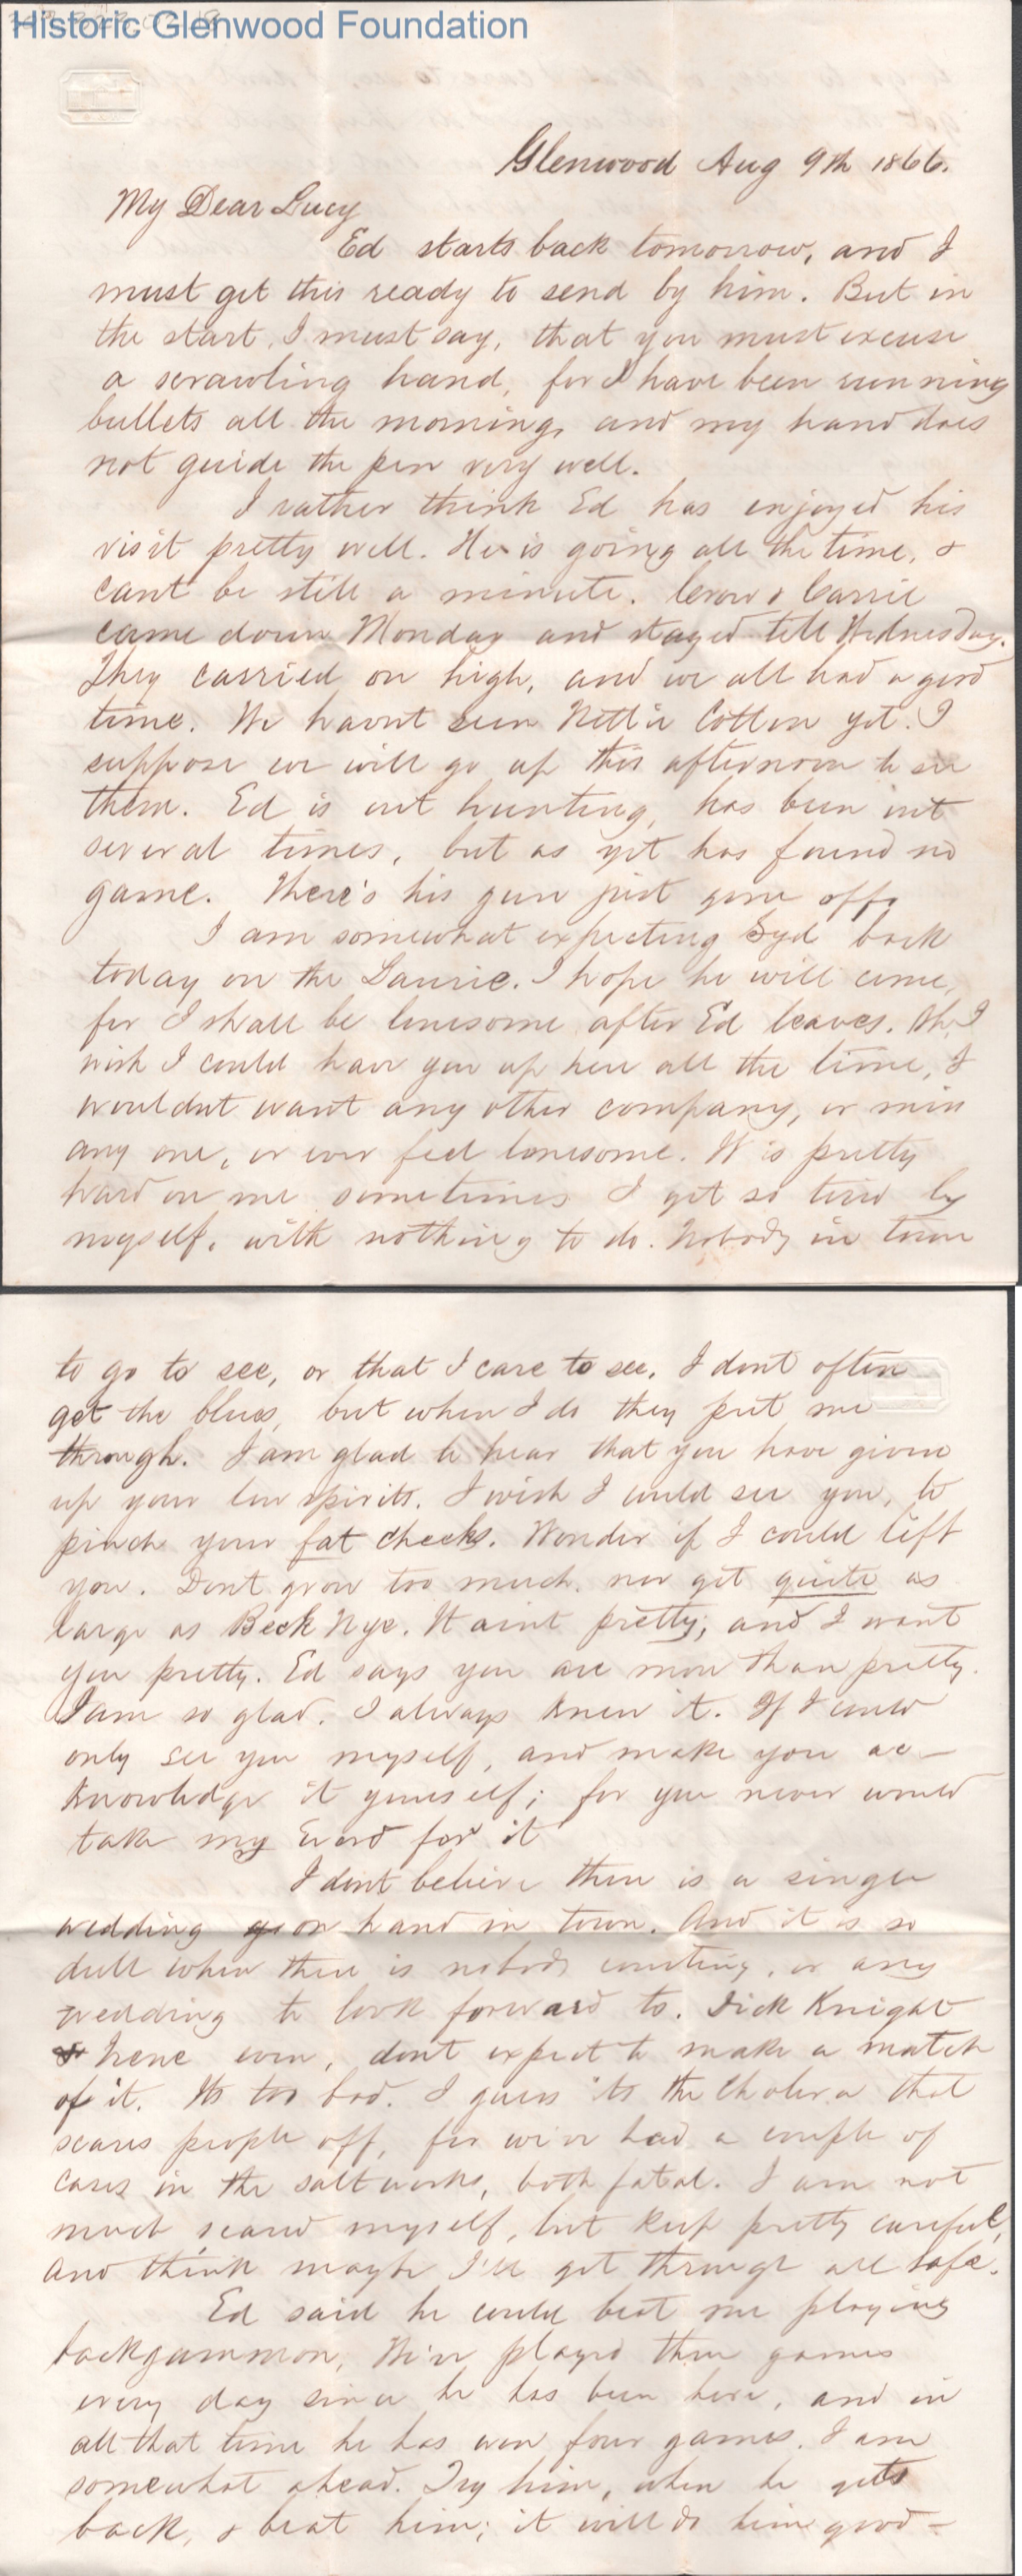 Historic Glenwood Foundation
Glenwood Aug 9th 1866.
My Dear Lucy
Ed starts back tomorrow, and I
must get this ready to send by him. But in
the start, I must say, that you must excuse
a scrawling hand, for I have been running
bullets all the morning, and my hand does
not guide the pen very well.
I rather think Ed has enjoyed his
visit pretty well. He is going all the time, &
cant be still a minute. Crow & Carrie
came down Monday and stayed till Wednesday.
They carried on high, and we all had a good
time. We havnt seen Nettie Cotton yet. I
suppose we will go up this afternoon to see
them. Ed is out hunting, has been out
several times, but as yet has found no
game. There's his gun just gone off.
I am somewhat expecting Syd back
today on the Laurie. I hope he will come,
for I shall be lonesome after Ed leaves. Oh I
wish I could have you up here all the time, I
wouldnt want any other company, or miss
any one, or ever feel lonesome. It is pretty
hard on me sometimes I get so tired by
myself, with nothing to do. Nobody in town
to go to see, or that I care to see. I dont often
get the blues, but when I do they put me
through. I am glad to hear that you have given
up your low spirits. I wish I could see you, to
pinch your fat cheeks. Wonder if I could lift
you. Dont grow too much, nor get quite as
large as Beck Nye. It aint pretty; and I want
you pretty. Ed says you are more than pretty.
I am so glad. I always knew it. If I could
only see you myself, and make you ac-
knowledge it yourself; for you never would
take my word for it
I dont believe there is a single
wedding on hand in town. And it is so
dull when there is nobody courting, or any
wedding to look forward to. Dick Knight
& Irene even, dont expect to make a match
of it. Its too bad. I guess its the Cholera that
scares people off, for we've had a couple of
cases in the salt works, both fatal. I am not
much scared myself, but keep pretty careful,
and think maybe I'll get through all safe.
Ed said he could beat me playing
backgammon, We've played three games
every day since he has been here, and in
all that time he has won four games. I am
somewhat ahead. Try him, when he gets
back, & beat him; it will do him good -